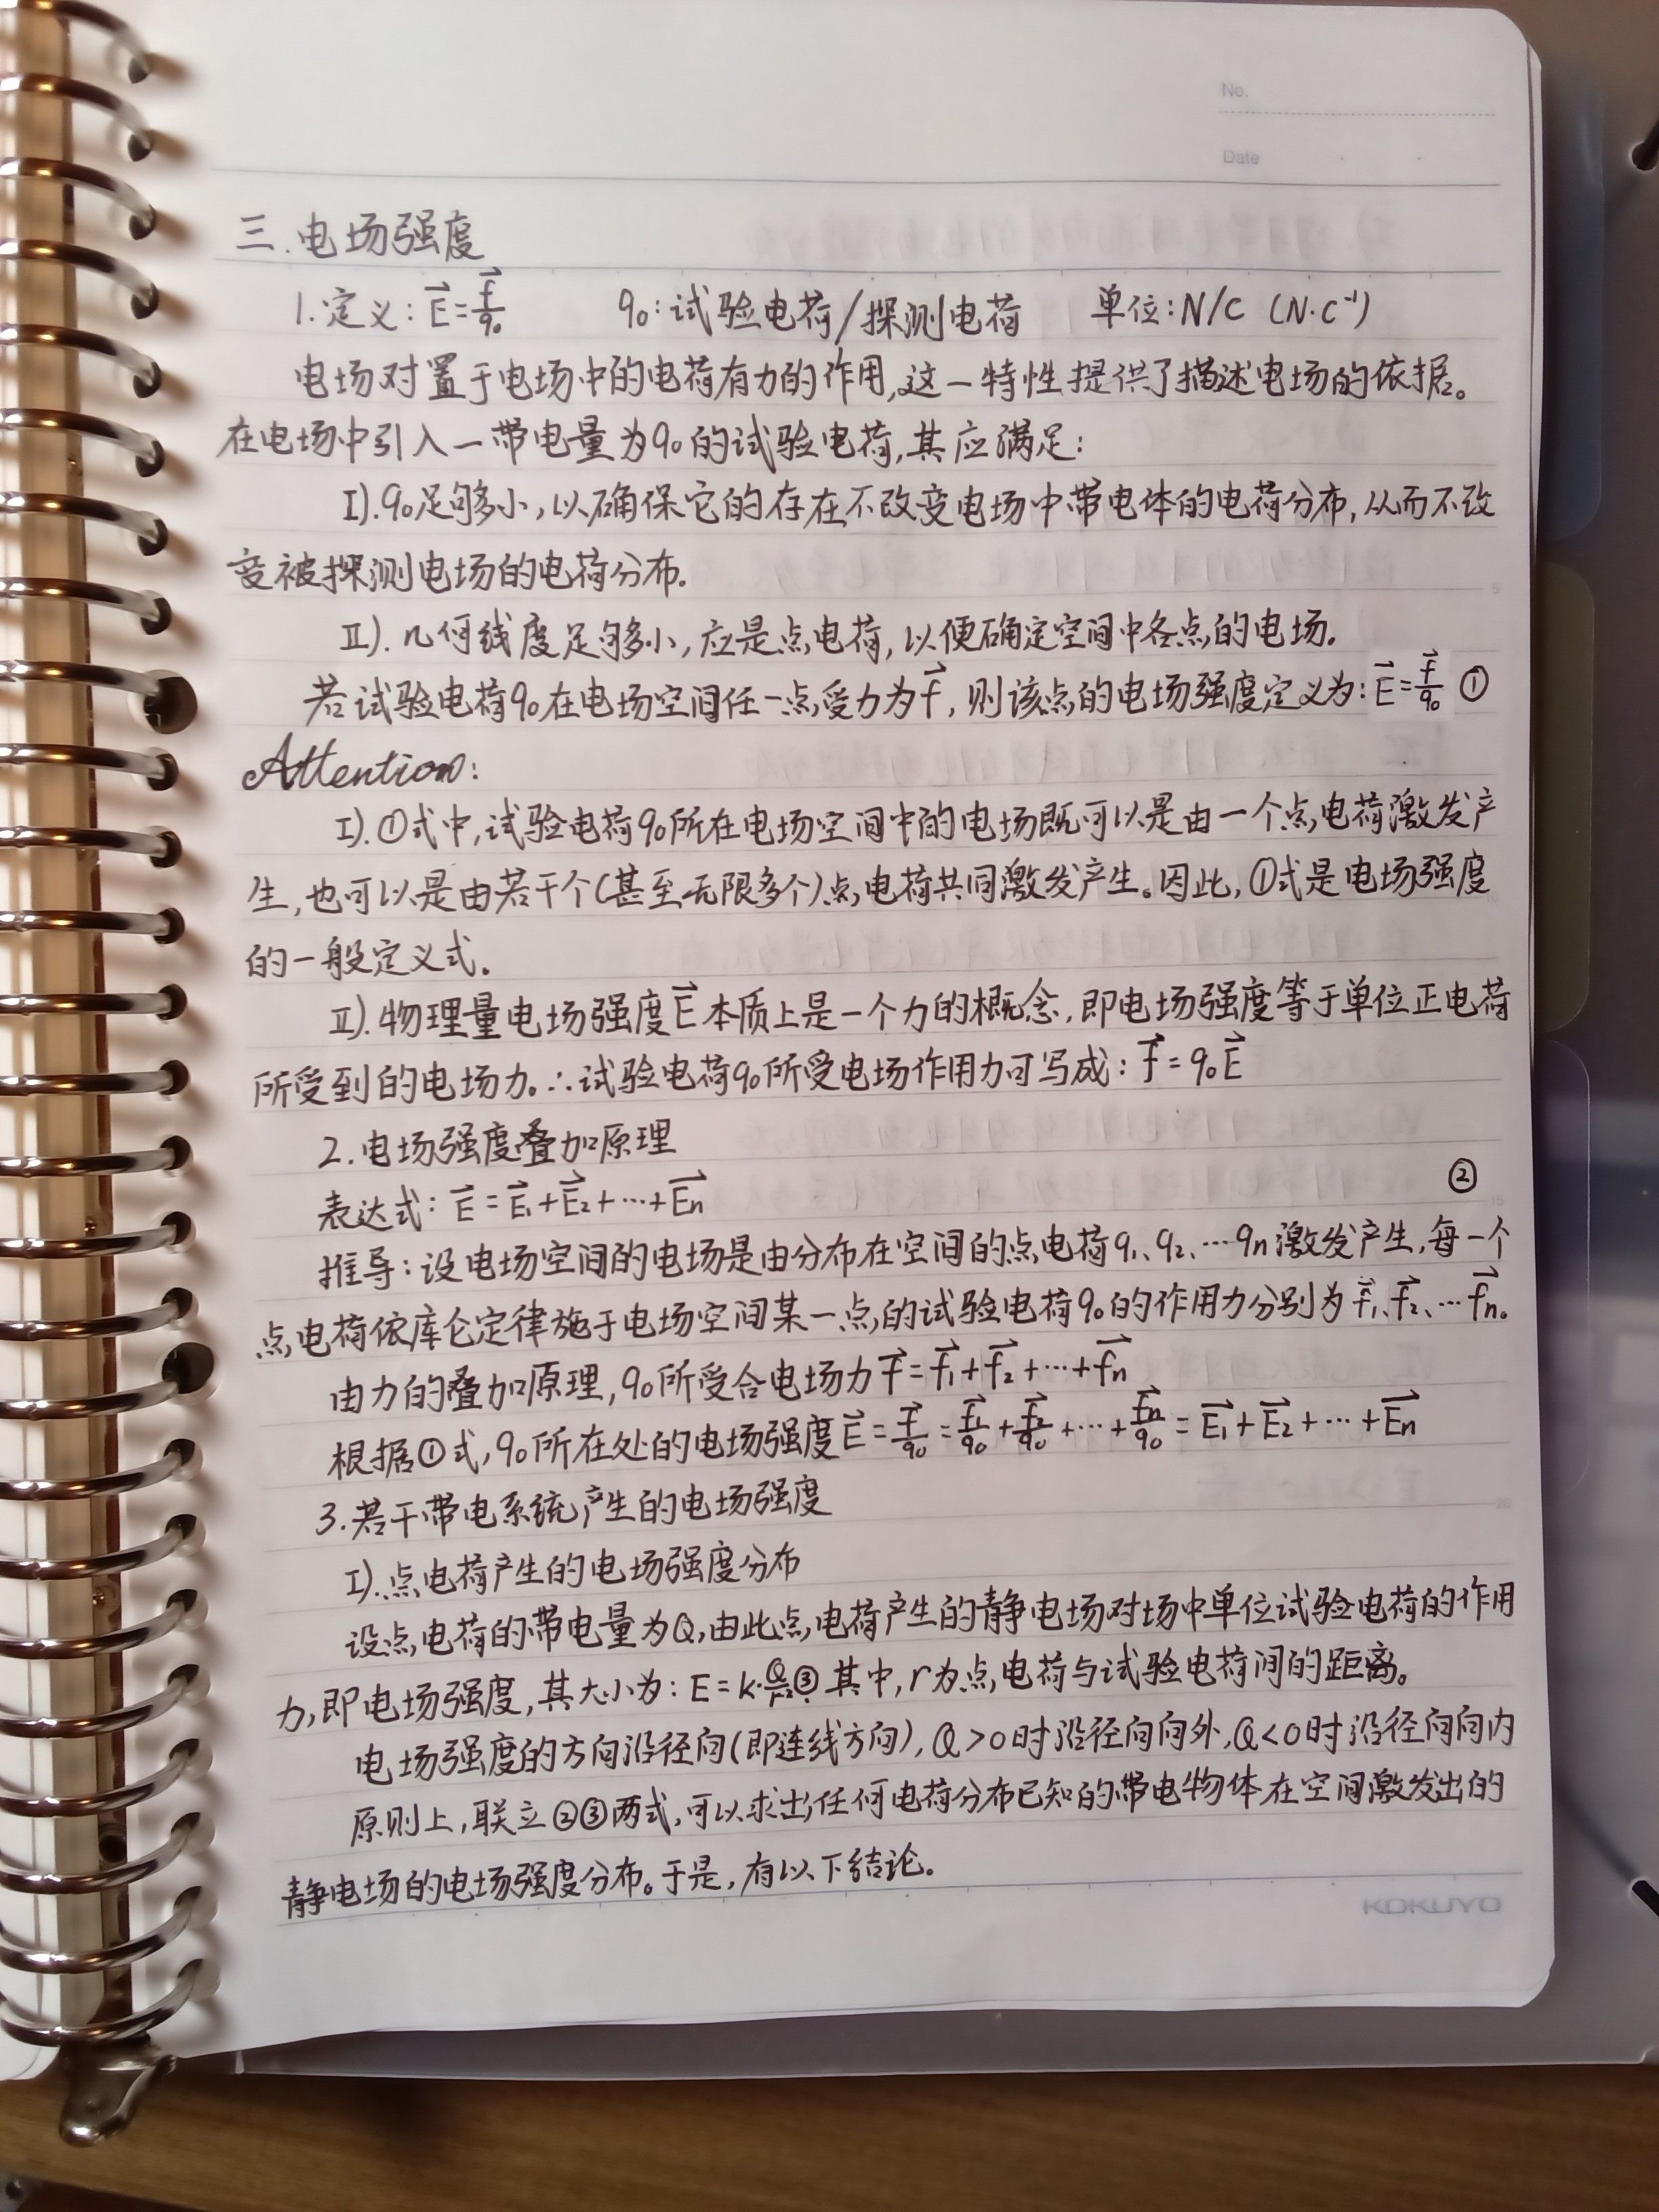 No.
Date
三.电场强度
1.定义: E⃗=f⃗/q₀ q₀:试验电荷/探测电荷 单位:N/C (N·C⁻¹)
电场对置于电场中的电荷有力的作用,这一特性提供了描述电场的依据。
在电场中引入一带电量为q₀的试验电荷,其应满足:
I).q₀足够小,以确保它的存在不改变电场中带电体的电荷分布,从而不改
变被探测电场的电荷分布.
II).几何线度足够小,应是点电荷,以便确定空间中各点的电场.
若试验电荷q₀在电场空间任一点受力为f⃗,则该点的电场强度定义为:E⃗=f⃗/q₀ ①
Attention:
I).①式中,试验电荷q₀所在电场空间中的电场既可以是由一个点电荷激发产
生,也可以是由若干个(甚至无限多个)点电荷共同激发产生。因此,①式是电场强度
的一般定义式.
II).物理量电场强度E⃗本质上是一个力的概念,即电场强度等于单位正电荷
所受到的电场力。∴试验电荷q₀所受电场作用力可写成:f⃗=q₀E⃗
2.电场强度叠加原理
表达式: E⃗=E⃗₁+E⃗₂+···+E⃗n ②
推导:设电场空间的电场是由分布在空间的点电荷q₁、q₂、···qn激发产生,每一个
点电荷依库仑定律施于电场空间某一点的试验电荷q₀的作用力分别为f⃗₁、f⃗₂、···f⃗n。
由力的叠加原理,q₀所受合电场力f⃗=f⃗₁+f⃗₂+···+f⃗n
根据①式,q₀所在处的电场强度E⃗=f⃗/q₀=f⃗₁/q₀+f⃗₂/q₀+···+f⃗n/q₀=E⃗₁+E⃗₂+···+E⃗n
3.若干带电系统产生的电场强度
I).点电荷产生的电场强度分布
设点电荷的带电量为Q,由此点电荷产生的静电场对场中单位试验电荷的作用
力,即电场强度,其大小为: E=k·Q/r²③.其中,r为点电荷与试验电荷间的距离。
电场强度的方向沿径向(即连线方向),Q>0时沿径向向外,Q<0时沿径向向内
原则上,联立②③两式,可以求出任何电荷分布已知的带电物体在空间激发出的
静电场的电场强度分布。于是,有以下结论.
KOKUYO